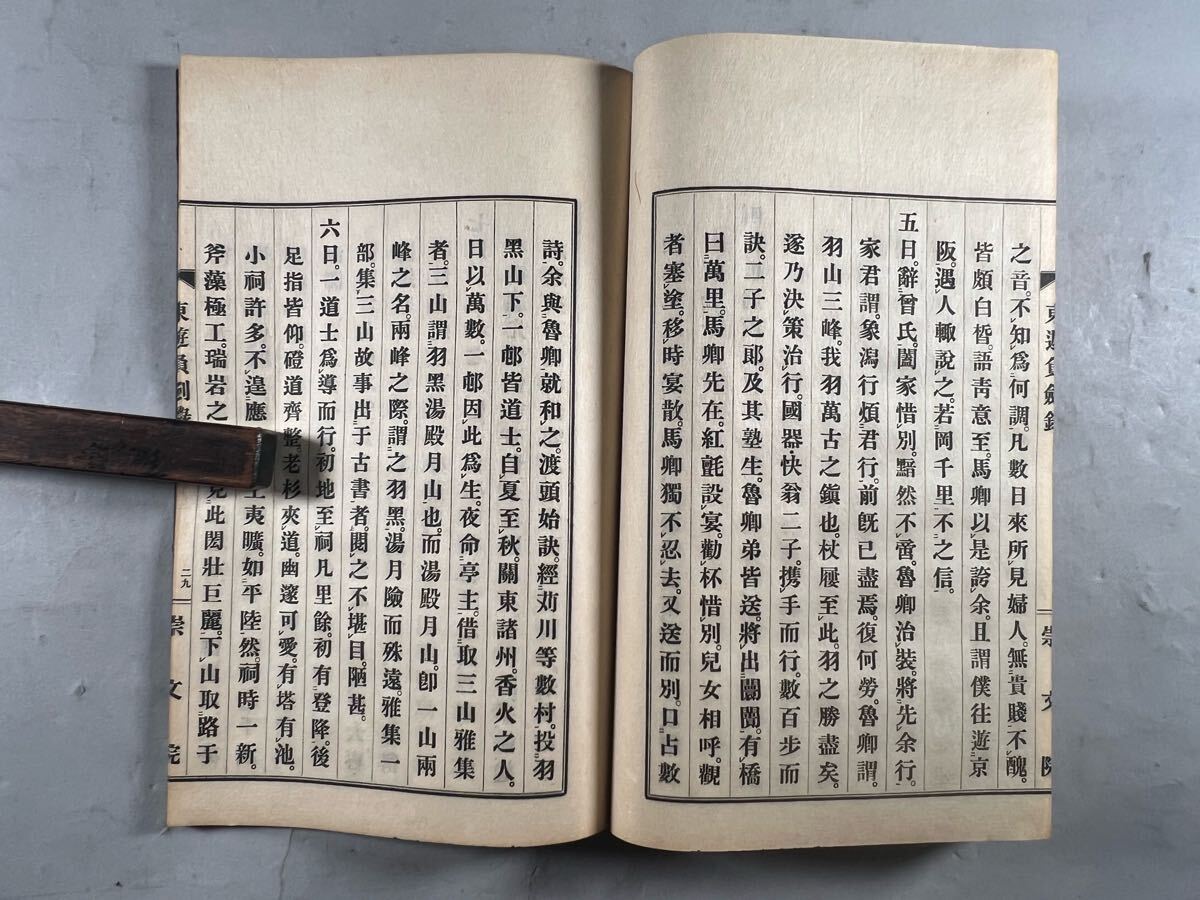 之音。不知爲何調。凡數日來所見婦人。無貴賤不醜。
皆頗白皙。語靑意至。馬卿以是誇余。且謂僕往遊京
阪。遇人輙說之。若岡千里不之信。
五日。辭曾氏。闔家惜別。黯然不啻。魯卿治裝。將先余行。
家君謂。象潟行煩君行。前旣已盡焉。復何勞。魯卿謂。
羽山三峰。我羽萬古之鎭也。杖屨至此。羽之勝盡矣。
遂乃決策治行。國器・快翁二子。携手而行。數百步而
訣。二子之郞。及其塾生。魯卿弟皆送。將出闤闠。有橋
曰萬里。馬卿先在。紅氈設宴。勸杯惜別。兒女相呼。觀
者塞塗。移時宴散。馬卿獨不忍去。又送而別。口占數
詩。余與魯卿就和之。渡頭始訣。經苅川等數村。投羽
黑山下。一邨皆道士。自夏至秋。關東諸州。香火之人。
日以萬數。一邨因此爲生。夜命亭主。借取三山雅集
者。三山謂羽黑湯殿月山也。而湯殿月山。卽一山兩
峰之名。兩峰之際。謂之羽黑。湯月險而殊遠。雅集一
部。集三山故事出于古書者。閱之不堪目。陋甚。
六日。一道士爲導而行。初地至祠凡里餘。初有登降。後
足指皆仰。磴道齊整。老杉夾道。幽邃可愛。有塔有池。
小祠許多。不遑應 夷曠。如平陸然。祠時一新。
斧藻極工。瑞岩之 此閎壯巨麗。下山取路于
東遊負劍錄
二九
崇文院
東遊負劍錄
崇文院